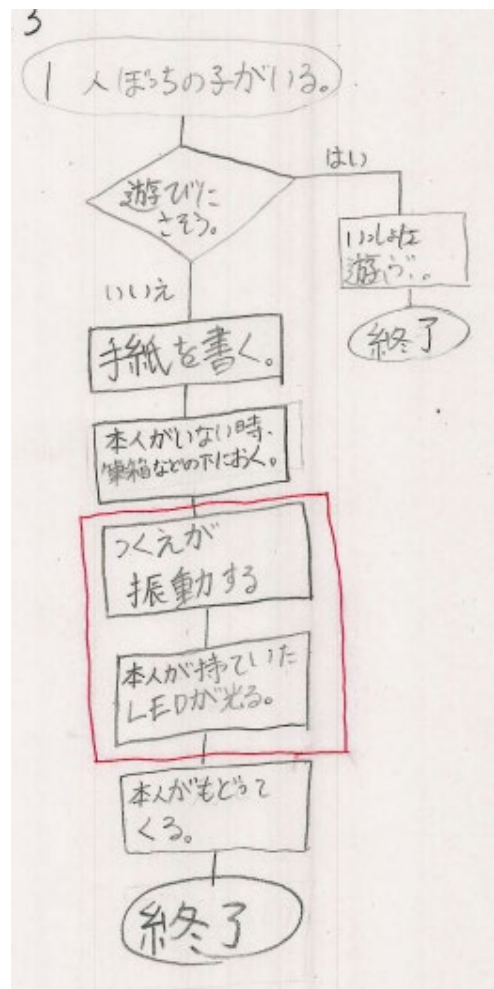 3
1人ぼっちの子がいる。
遊びに
さそう。
はい
いっしょに
遊ぶ。
終了
いいえ
手紙を書く。
本人がいない時、
筆箱などの下におく。
つくえが
振動する
本人が持っていた
LEDが光る。
本人がもどって
くる。
終了